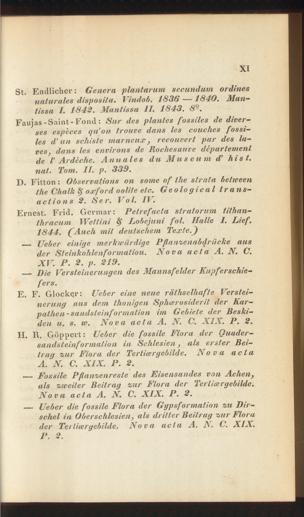 XI
St. Endlicher: Genera plantarum secundum ordines
naturales disposita. Vindob. 1836—1840. Man-
tissa I. 1842. Mantissa II. 1843. 8°.
Faujas-Saint-Fond: Sur des plantes fossiles de diver-
ses espèces qu'on trouve dans les couches fossi-
les d'un schiste marneux, recouvert par des la-
ves, dans les environs de Rochesauve département
de l'Ardèche. Annales du Museum d'hist.
nat. Tom. II. p. 339.
D. Fitton: Observations on some of the strata between
the Chalk & oxford oolite etc. Geological trans-
actions 2. Ser. Vol. IV.
Ernest. Frid. Germar: Petrefacta stratorum lithan-
thracum Wettini & Lobejuni fol. Halle I. Lief.
1844. (Auch mit deutschem Texte.)
— Ueber einige merkwürdige Pflanzenabdrücke aus
der Steinkohlenformation. Nova acta A. N. C.
XV. P. 2. p. 219.
— Die Versteinerungen des Mannsfelder Kupferschie-
fers.
E. F. Glocker: Ueber eine neue räthselhafte Verstei-
nerung aus dem thonigen Sphærosiderit der Kar-
pathen-sandsteinformation im Gebiete der Beski-
den u. s. w. Nova acta A. N. C. XIX. P. 2.
H. R. Göppert: Ueber die fossile Flora der Quader-
sandsteinformation in Schlesien, als erster Bei-
trag zur Flora der Tertiærgebilde. Nova acta
A. N. C. XIX. P. 2.
— Fossile Pflanzenreste des Eisensandes von Achen,
als zweiter Beitrag zur Flora der Tertiærgebilde.
Nova acta A. N. C. XIX. P. 2.
— Ueber die fossile Flora der Gypsformation zu Dir-
schel in Oberschlesien, als dritter Beitrag zur Flora
der Tertiærgebilde. Nova acta A. N. C. XIX.
P. 2.